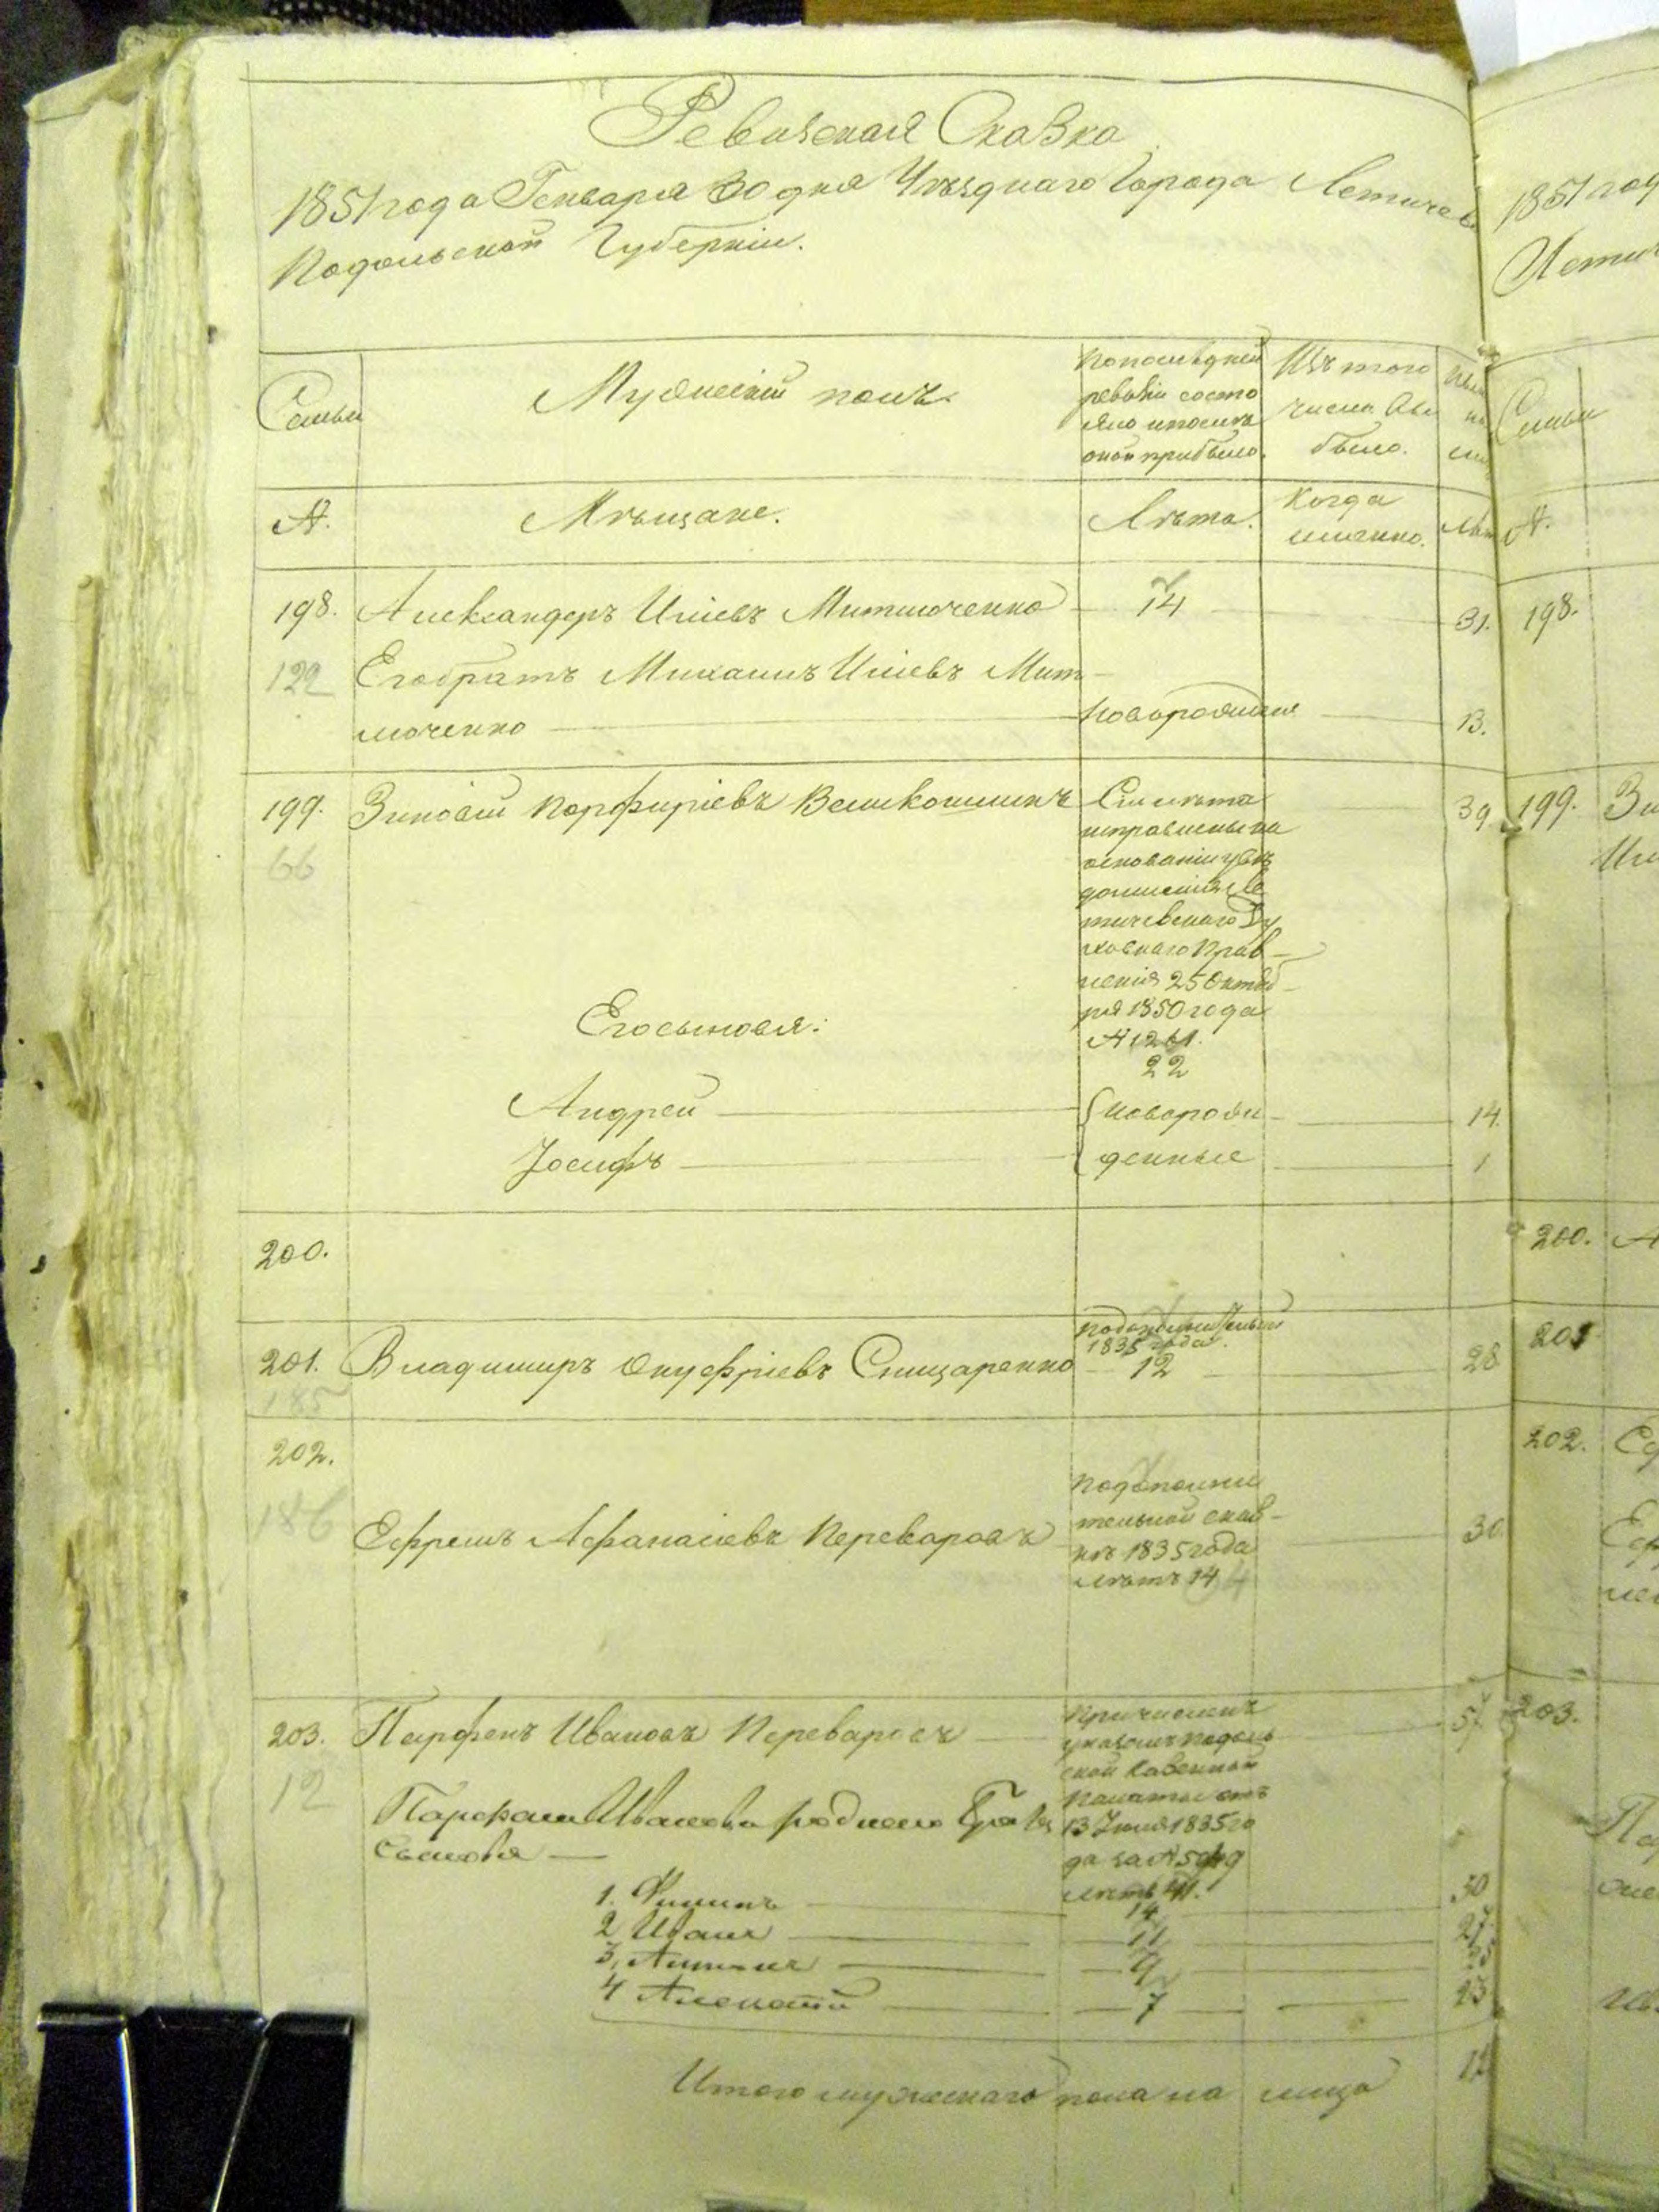 Ревизская Сказка
1851 года Генваря 30 дня Уѣзднаго Города Летичев
Подольской Губерніи.
Семьи
Мужескій полъ.
По послѣдней
ревизіи состо
яло и послѣ
оной прибыло.
Изъ того
числа Вы
было.
№.
Мѣщане.
Лѣта.
Когда
именно.
198. Александеръ Иліевъ Митлюченко 14 31.
122 Его братъ Михаилъ Иліевъ Мит
люченко Новорожден 13.
199. Зиновій Порфиріевъ Великошинъ 39
66
Сіи лѣта
исправлены на
основаніи увѣ
домленія Ле
тичевскаго Ду
ховнаго Прав
ленія 25 Октяб
ря 1850 года
№ 1261.
22
Его сыновья:
Андрей новорож 14.
Іосифъ денные 1
200.
По дополнительной
1835 года.
201. Владимиръ Онуфріевъ Снищаренко 12 28
185
202.
186
Ефремъ Афанасіевъ Переваровъ 30
По дополни
тельной сказ
кѣ 1835 года
лѣтъ 14
203. Парфенъ Ивановъ Переваровъ 57
12
Причисленъ
указомъ Подоль
ской Казенной
Палаты отъ
13 Іюня 1835 го
да за №
лѣтъ 41.
Парфена Иванова роднаго Брата
Сыновья
1. Филипъ 14 30
2 Иванъ 11 27
3. Антонъ 9 25
4 Алексѣй 7 23
Итого мужескаго пола на лицо
1851 год
Летич
Семьи
№.
198.
199. Зи
200. А
201
202. Еф
203.